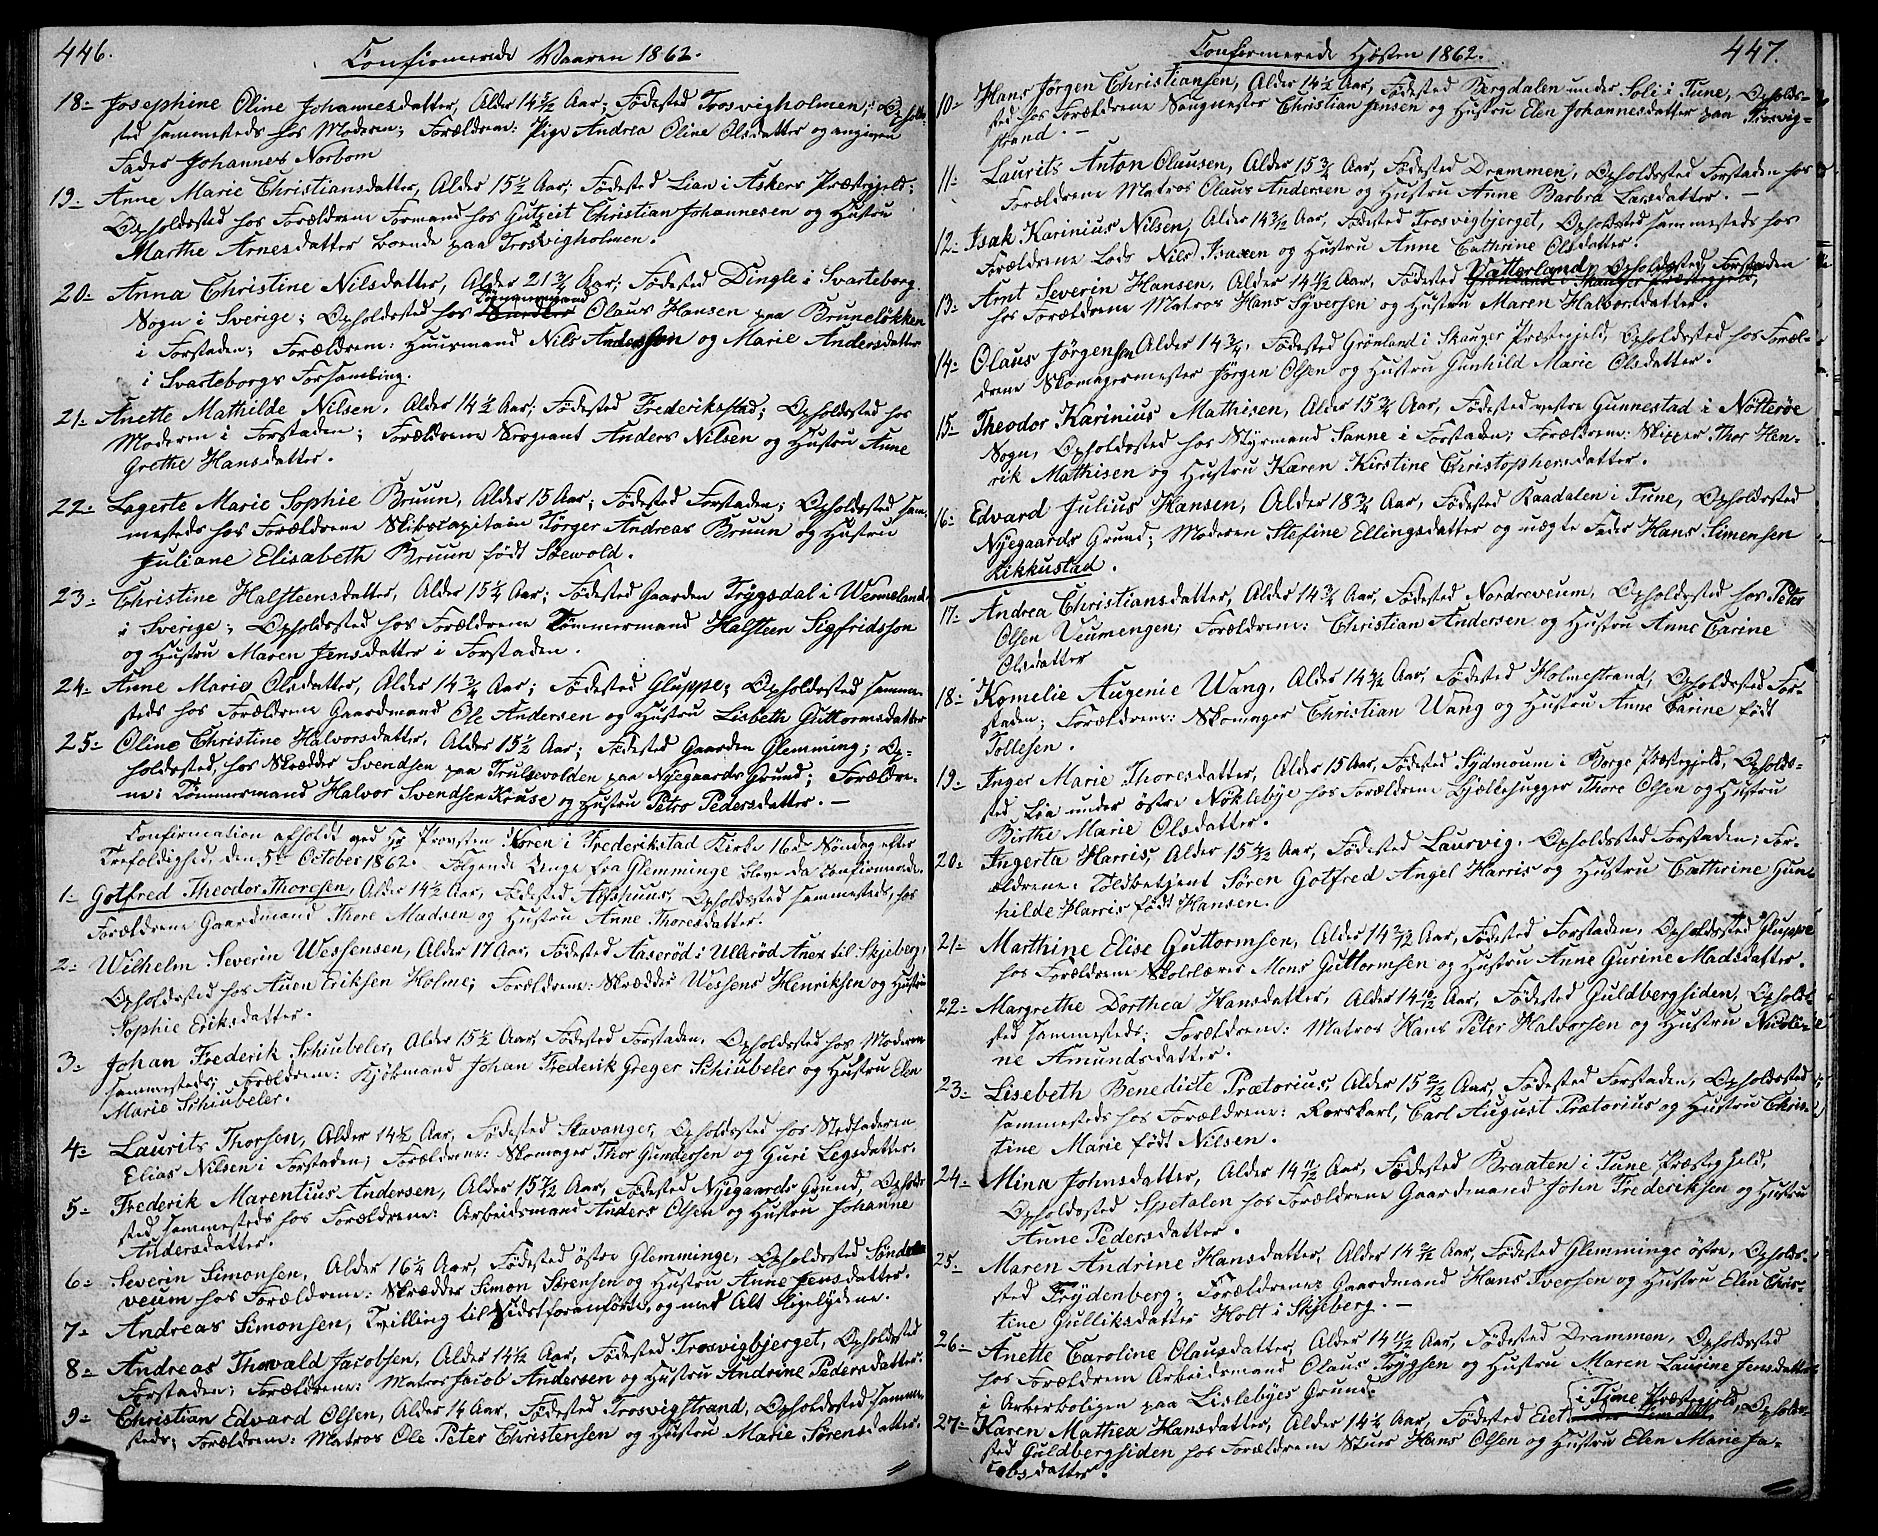 446.
Confirmerede Vaaren 1862.
18- Josephine Oline Johannesdatter, Alder 14 5/12 Aar; Fødested Trosvigholmen; Ophold-
sted sammesteds hos Moderen; Forældrene: Pige Andrea Oline Olsdatter og angiven
Fader Johannes Norbom
19- Anne Marie Christiansdatter, Alder 15 1/2 Aar; Fødested Lian i Askers Præstegjeld;
Opholdssted hos Forældrene Formand hos Gutzeit Christian Johannesen og Hustru
Marthe Arnesdatter boende paa Trosvigholmen.
20- Anna Christine Nilsdatter, Alder 21 3/4 Aar; Fødested Dingle i Svarteborg
Tømmermand
Sogn i Sverige; Opholdssted hos Olaus Hansen paa Bruneløkken
i Forstaden; Forældrene: Huusmand Nils Andersson og Marie Andersdatter
i Svarteborgs Forsamling.
21- Anette Mathilde Nilsen, Alder 14 1/2 Aar; Fødested Frederiksstad; Opholdssted hos
Moderen i Forstaden; Forældrene Sergeant Anders Nilsen og Hustru Anne
Grethe Hansdatter.
22- Lagerte Marie Sophie Bruun, Alder 15 Aar; Fødested Forstaden; Opholdssted sam-
mesteds hos Forældrene Skibscapitain Torger Andreas Bruun og Hustru
Juliane Elisabeth Bruun født Seewold.
23- Christine Halsteensdatter, Alder 15 1/4 Aar; Fødested Gaarden Trygsdal i Wermeland
i Sverige; Opholdssted hos Forældrene Tømmermand Halsteen Sigfridsson
og Hustru Maren Jensdatter i Forstaden.
24- Anne Marie Olsdatter, Alder 14 3/4 Aar; Fødested Gluppe; Opholdssted samme-
steds hos Forældrene Gaardmand Ole Andersen og Hustru Lisbeth Guttormsdatter
25- Oline Christine Halvorsdatter, Alder 15 1/2 Aar; Fødested Gaarden Glemming; Op-
holdssted hos Skrædder Svendsen paa Trulsevolden paa Nyegaards Grund; Forældre-
ne: Tømmermand Halvor Svendsen Kruse og Hustru Petro Pedersdatter. —
Confirmation afholdt ved Hr Provsten Koren i Frederikstad Kirke 16de Søndag efter
Trefoldighed, den 5te October 1862. Følgende Unge fra Glemminge bleve da confirmerede.
1- Gotfred Theodor Thoresen, Alder 14 1/2 Aar, Fødested Alfshuus, Opholdssted sammesteds, hos
Forældrene Gaardmand Thore Madsen og Hustru Anne Thoresdatter.
2- Wilhelm Severin Wessensen, Alder 17 Aar, Fødested Aaserød i Ullerød Anex til Skjeberg,
Opholdssted hos Auen Eriksen Holme; Forældrene: Skrædder Wessens Henriksen og Hustru
Sophie Eriksdatter.
3- Johan Frederik Schiubeler, Alder 15 1/2 Aar, Fødested Forstaden, Opholdssted hos Moderen
sammesteds; Forældrene: Kjøbmand Johan Frederik Greger Schiubeler og Hustru Elen
Marie Schiubeler.
4- Laurits Thorsen, Alder 14 1/2 Aar, Fødested Stavanger, Opholdssted hos Stedfaderen
Elias Nilsen i Forstaden; Forældrene: Skomager Thor Gundersen og Guri Legsdatter.
5- Frederik Marentius Andersen, Alder 15 7/12 Aar, Fødested Nyegaards Grund, Ophold-
sted sammesteds hos Forældrene: Arbeidsmand Anders Olsen og Hustru Johanne
Andersdatter.
6- Severin Simonsen, Alder 16 1/4 Aar, Fødested østre Glemminge, Opholdssted Søndre-
veum hos Forældrene: Skrædder Simon Sørensen og Hustru Anne Jensdatter.
7- Andreas Simonsen, Tvilling til Sidstforanførte, og med Alt Ligelydene.
8- Andreas Thorvald Jacobsen, Alder 14 1/2 Aar, Fødested Trosvigbjerget, Opholdssted
Forstaden; Forældrene: Matros Jacob Andersen og Hustru Andrine Pedersdatter.
9- Christian Edvard Olsen, Alder 14 Aar, Fødested Trosvigstrand, Opholdssted samme-
steds; Forældrene: Matros Ole Peter Christensen og Hustru Marie Sørensdatter.
447.
Confirmerede Høsten 1862.
10- Hans Jørgen Christiansen, Alder 14 1/2 Aar, Fødested Bergdalen under Soli i Tune, Opholds-
sted hos Forældrene Saugmester Christian Jensen og Hustru Elen Johannesdatter paa Trosvig-
strand. —
11- Laurits Anton Olausen, Alder 15 3/4 Aar, Fødested Drammen, Opholdssted Forstaden hos
Forældrene Matros Olaus Andersen og Hustru Anne Barbra Larsdatter. —
12- Isak Karinius Nilsen, Alder 14 3/12 Aar, Fødested Trosvigbjerget, Opholdssted sammesteds hos
Forældrene Lods Nils Isaxen og Hustru Anne Cathrine Olsdatter.
13- Arnt Severin Hansen, Alder 14 11/12 Aar, Fødested Vatterland, Opholdssted Forstaden
hos Forældrene Matros Hans Syversen og Hustru Maren Halvorsdatter.
14- Olaus Jørgensen Alder 14 3/4, Fødested Grønland i Skauger Præstegjeld, Opholdssted hos Foræl-
drene Skomagermester Jørgen Olsen og Hustru Gunhild Marie Olsdatter.
15- Theodor Karinius Mathisen, Alder 15 3/4 Aar, Fødested vestre Gunnestad i Nøtterøe
Sogn, Opholdssted hos Styrmand Sanne i Forstaden; Forældrene: Skipper Thor Hen-
rik Mathisen og Hustru Karen Kirstine Christophersdatter.
16- Edvard Julius Hansen, Alder 18 3/4 Aar, Fødested Raadalen i Tune, Opholdssted
Nyegaards Grund; Moderen Stefine Ellingsdatter og uægte Fader Hans Simensen
Kikkustad.
17- Andrea Christiansdatter, Alder 14 3/4 Aar, Fødested Nordreveum, Opholdssted hos Peter
Olsen Veumengen; Forældrene: Christian Andersen og Hustru Anne Carine
Olsdatter
18- Komelie Augenie Wang, Alder 14 3/12 Aar, Fødested Holmestrand, Opholdssted For-
staden; Forældrene: Skomager Christian Wang og Hustru Anne Carine født
Tollesen.
19- Inger Marie Thoresdatter, Alder 15 Aar, Fødested Sydmoum i Borge Præstegjeld, Opholds-
sted Lia under østre Nøklebye hos Forældrene Fjællehugger Thore Olsen og Hustru
Birthe Marie Olsdatter.
20- Ingerta Harris, Alder 15 4/12 Aar, Fødested Laurvig, Opholdssted Forstaden; For-
ældrene: Toldbetjent Søren Gotfred Angel Harris og Hustru Cathrine Gun-
hilde Harris født Hansen.
21- Marthine Elise Guttormsen, Alder 14 2/12 Aar, Fødested Forstaden, Opholdssted Gluppe
hos Forældrene Skolelærer Mons Guttormsen og Hustru Anne Gurine Madsdatter.
22- Margrethe Dorthea Hansdatter, Alder 14 10/12 Aar, Fødested Guldbergsiden, Opholds-
sted sammesteds; Forældrene: Matros Hans Peter Halvorsen og Hustru Nicoli-
ne Amundsdatter.
23- Lisebeth Benedicte Prætorius, Alder 15 2/12 Aar, Fødested Forstaden, Opholdssted
sammesteds hos Forældrene: Rorskarl, Carl August Prætorius og Hustru Chris-
tine Marie født Nilsen.
24- Mina Johnsdatter, Alder 14 11/12 Aar, Fødested Braaten i Tune Præstegjeld,
Opholdssted Spetalen hos Forældrene Gaardmand John Frederiksen og Hustru
Anne Pedersdatter.
25- Maren Andrine Hansdatter, Alder 14 9/12 Aar, Fødested Glemminge østre, Opholds-
sted Frydenberg; Forældrene: Gaardmand Hans Iversen og Hustru Elen Chris-
tine Gulliksdatter Holt i Skjeberg. —
26- Anette Caroline Olausdatter, Alder 14 11/12 Aar, Fødested Drammen, Opholdssted
hos Forældrene Arbeidsmand Olaus Trygsen og Hustru Maren Laurine Jensdatter
i Arberboligen paa Lislebyes Grund.
i Tune Præstegjeld,
27- Karen Mathea Hansdatter, Alder 14 1/2 Aar, Fødested Eiet Opholds-
sted Guldbergsiden hos Forældrene Stuer Hans Olsen og Hustru Elen Marie Ja-
cobsdatter.